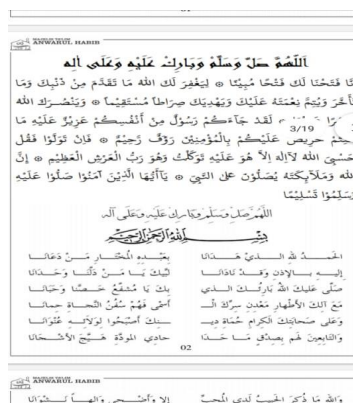 ANWARUL HABIB
اَللّٰهُمَّ صَلِّ وَسَلِّمْ وَبَارِكْ عَلَيْهِ وَعَلَى اٰلِهِ
نَّا فَتَحْنَا لَكَ فَتْحًا مُبِيْنًا ۞ لِيَغْفِرَ لَكَ اللهُ مَا تَقَدَّمَ مِنْ ذَنْبِكَ وَمَا
تَأَخَّرَ وَيُتِمَّ نِعْمَتَهُ عَلَيْكَ وَيَهْدِيَكَ صِرَاطًا مُسْتَقِيْمًا ۞ وَيَنْصُرَكَ اللهُ
لَقَدْ جَاءَكُمْ رَسُوْلٌ مِنْ أَنْفُسِكُمْ عَزِيْزٌ عَلَيْهِ مَا
3/19
حَرِيْصٌ عَلَيْكُمْ بِالْمُؤْمِنِيْنَ رَؤُفٌ رَحِيْمٌ ۞ فَاِنْ تَوَلَّوْا فَقُلْ
حَسْبِيَ اللهُ لَآاِلٰهَ اِلاَّ هُوَ عَلَيْهِ تَوَكَّلْتُ وَهُوَ رَبُّ الْعَرْشِ الْعَظِيْمِ ۞ إِنَّ
اللهَ وَمَلَآئِكَتَهُ يُصَلُّوْنَ عَلَى النَّبِيِّ ۞ يَآأَيُّهَا الَّذِيْنَ آمَنُوْا صَلُّوْا عَلَيْهِ
وَسَلِّمُوْا تَسْلِيْمًا
اللّٰهُمَّ صَلِّ وَسَلِّمْ وَبَارِكْ عَلَيْهِ وَعَلَى آلِهِ
بِسْمِ اللهِ الرَّحْمٰنِ الرَّحِيْمِ
الحَمْدُ للهِ الَّذِيْ هَدَانَا بِعَبْدِهِ الْمُخْتَارِ مَنْ دَعَانَا
إِلَيْهِ بِالإِذْنِ وَقَدْ نَادَانَا لَبَّيْكَ يَا مَنْ دَلَّنَا وَحَدَانَا
صَلَّى عَلَيْكَ اللهُ بَارِئُكَ الَّذِي بِكَ يَا مُشَفَّعُ خَصَّنَا وَحَبَانَا
مَعَ آلِكَ الأَطْهَارِ مَعْدِنِ سِرِّكَ الْـ أَسْمَى فَهُمْ سُفُنُ النَّجَاةِ حِمَانَا
وَعَلَى صَحَابَتِكَ الْكِرَامِ حُمَاةِ دِيـ ـنِكَ أَصْبَحُوْا لِوَلَائِهِ عُنْوَانَا
وَالتَّابِعِيْنَ لَهُمْ بِصِدْقٍ مَا حَدَا حَادِي الْمَوَدَّةِ هَيَّجَ الأَشْجَانَا
02
ANWARUL HABIB
وَاللهِ مَا ذُكِرَ الْحَبِيْبُ لَدَى الْمُحِبِّ إِلَّا وَأَضْحَى وَالِهًا نَشْوَانَا